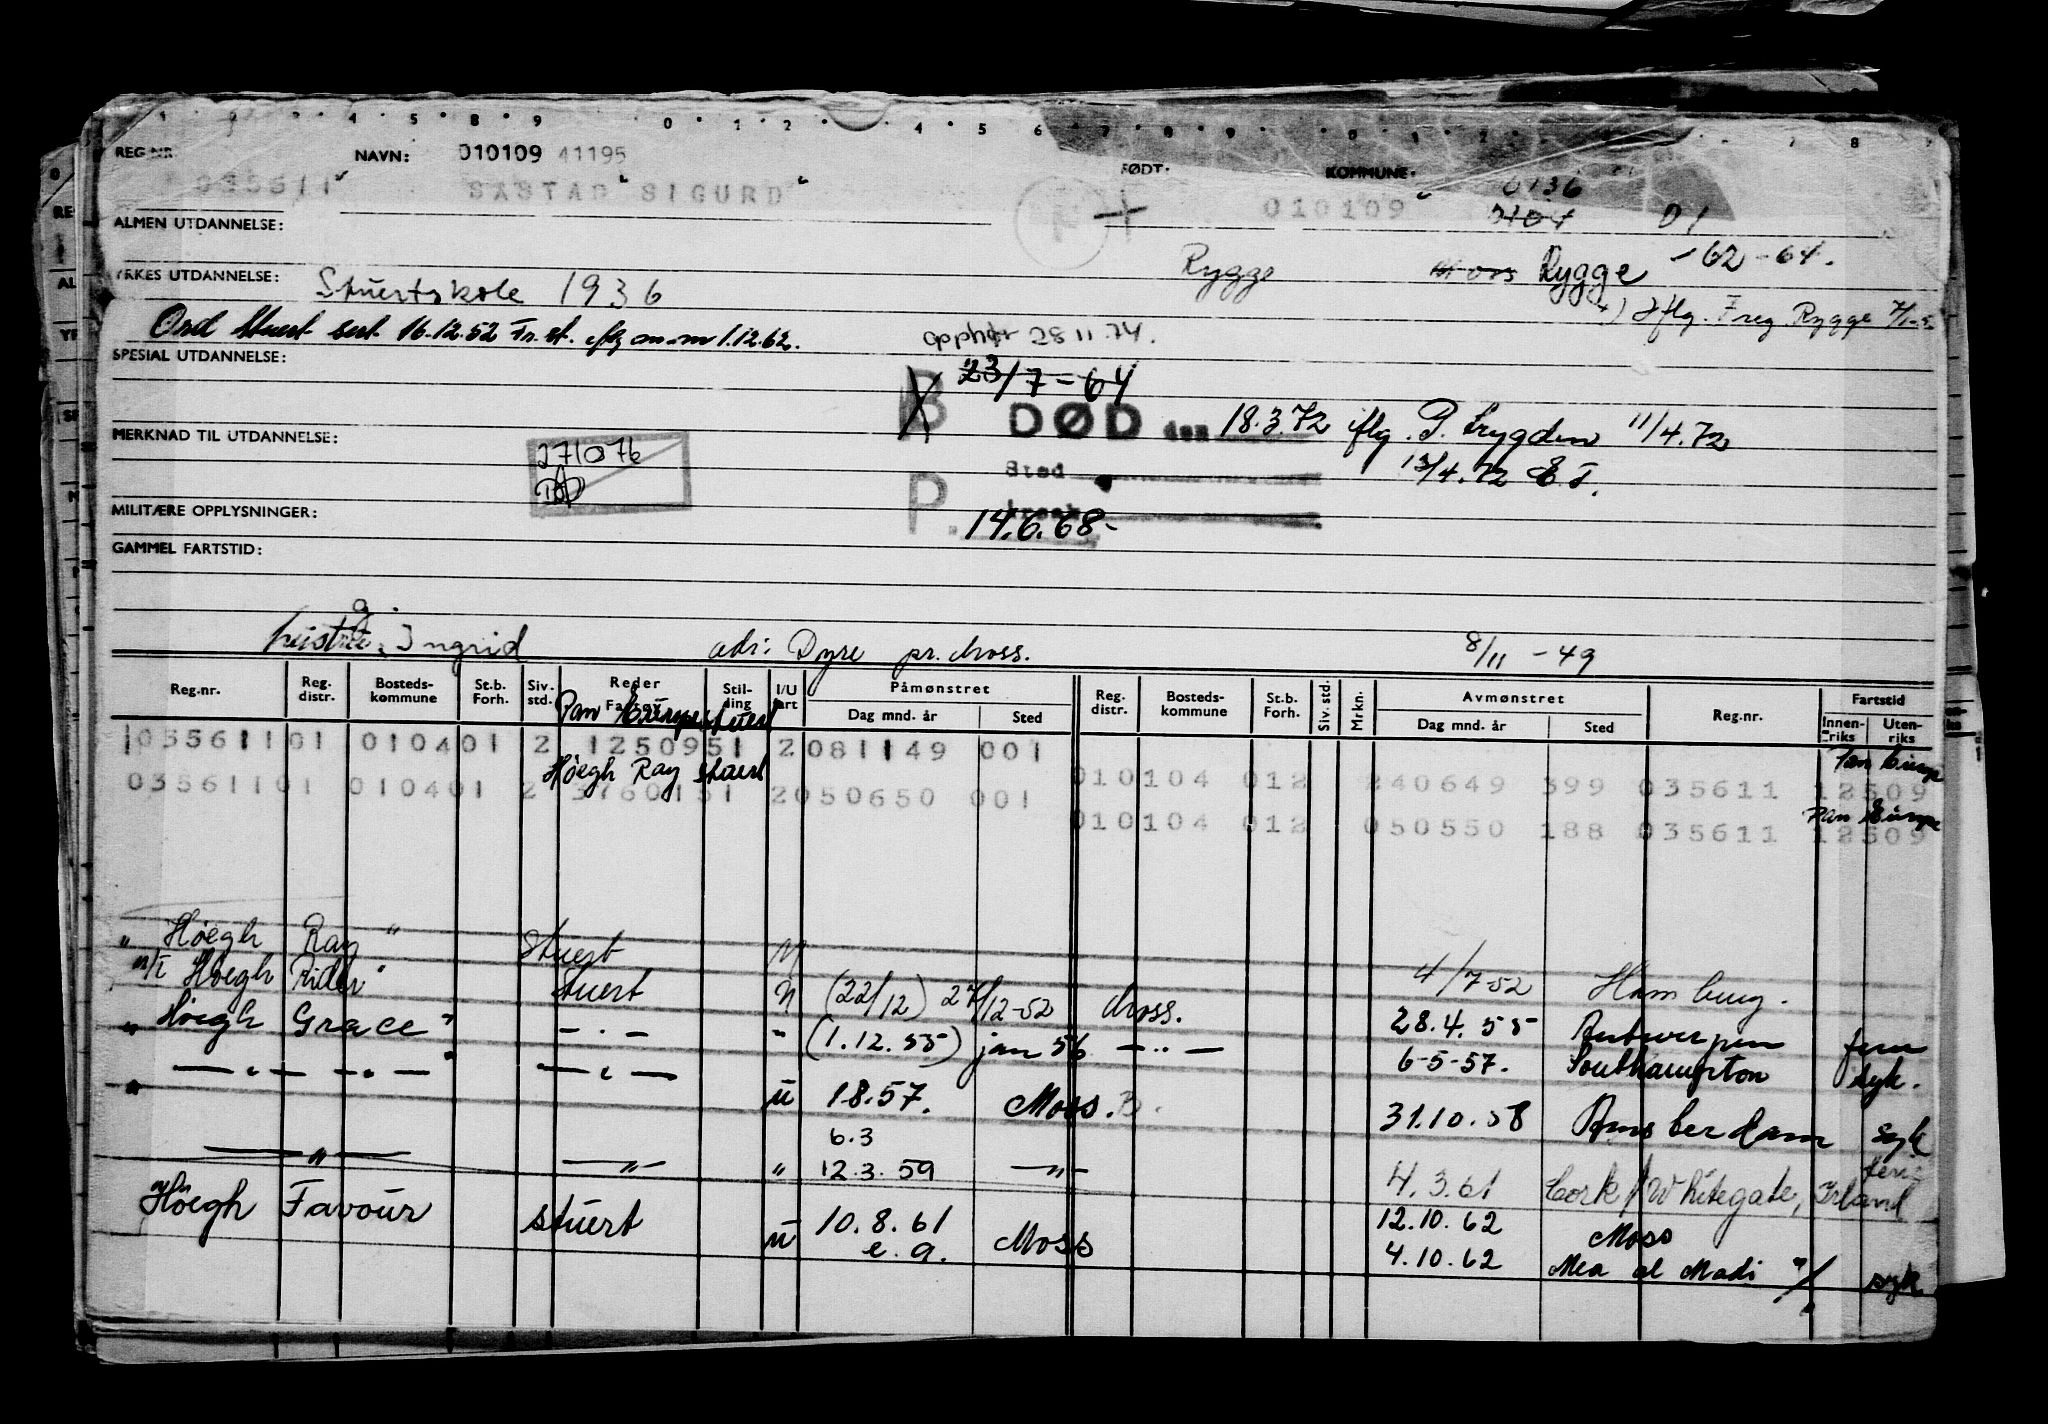 REG.NR. NAVN: 010109 41195 FØDT: KOMMUNE: 0136
035611 SÅSTAD SIGURD 010109 0104 01
ALMEN UTDANNELSE:
Rygge Moss Rygge -62-64.
YRKES UTDANNELSE: Stuertskole 1936
iflg. Freg. Rygge
Ord Stuert sert. 16.12.52 Fr.st. 1.12.62. opphør 28 11.74.
SPESIAL UTDANNELSE:
B 23/7-64
DØD den 18.3.72 iflg. P. trygden 11/4.72
MERKNAD TIL UTDANNELSE: 271076
Sted 12/4.72 E.T.
P. 14.6.68-
MILITÆRE OPPLYSNINGER:
GAMMEL FARTSTID:
hustru, Ingrid adr: Dyre pr. Moss. 8/11-49
Reg.nr. Reg. distr. Bosteds-kommune St.b. Forh. Siv. std. Reder Fartøy Stil-ling I/U fart Påmønstret Dag mnd. år Sted Reg. distr. Bosteds-kommune St.b. Forh. Siv. std. Mrkn. Avmønstret Dag mnd. år Sted Reg.nr. Fartstid Innen-riks Uten-riks
Pan Europe stuert
03561101 010401 2 1250951 2 081149 001
Pan Europe
Høegh Ray stuert
010104 012 240649 399 035611 12509
03561101 010401 2 3760151 2 050650 001
Pan Europe
010104 012 050550 188 035611 12509
" Høegh Ray " Stuert U 4/7-52 Hamburg.
M/T Høegh Rider " Stuert U (22/12) 27/12-52 Moss. 28.4.55 Antwerpen ferie
" Høegh Grace " — . — " (1.12.55) jan 56 — " — 6-5-57. Southampton syk.
" — " — — " — " — " — U 1.8.57. Moss. 31.10.58 Amsterdam syk
6.3
— " — — " — " 12.3.59 — " — 4.3.61 Cork / Whitegate, Irland ferie
Høegh Favour stuert U 10.8.61 Moss 12.10.62 Moss
e.a. 4.10.62 Mea al Madi syk